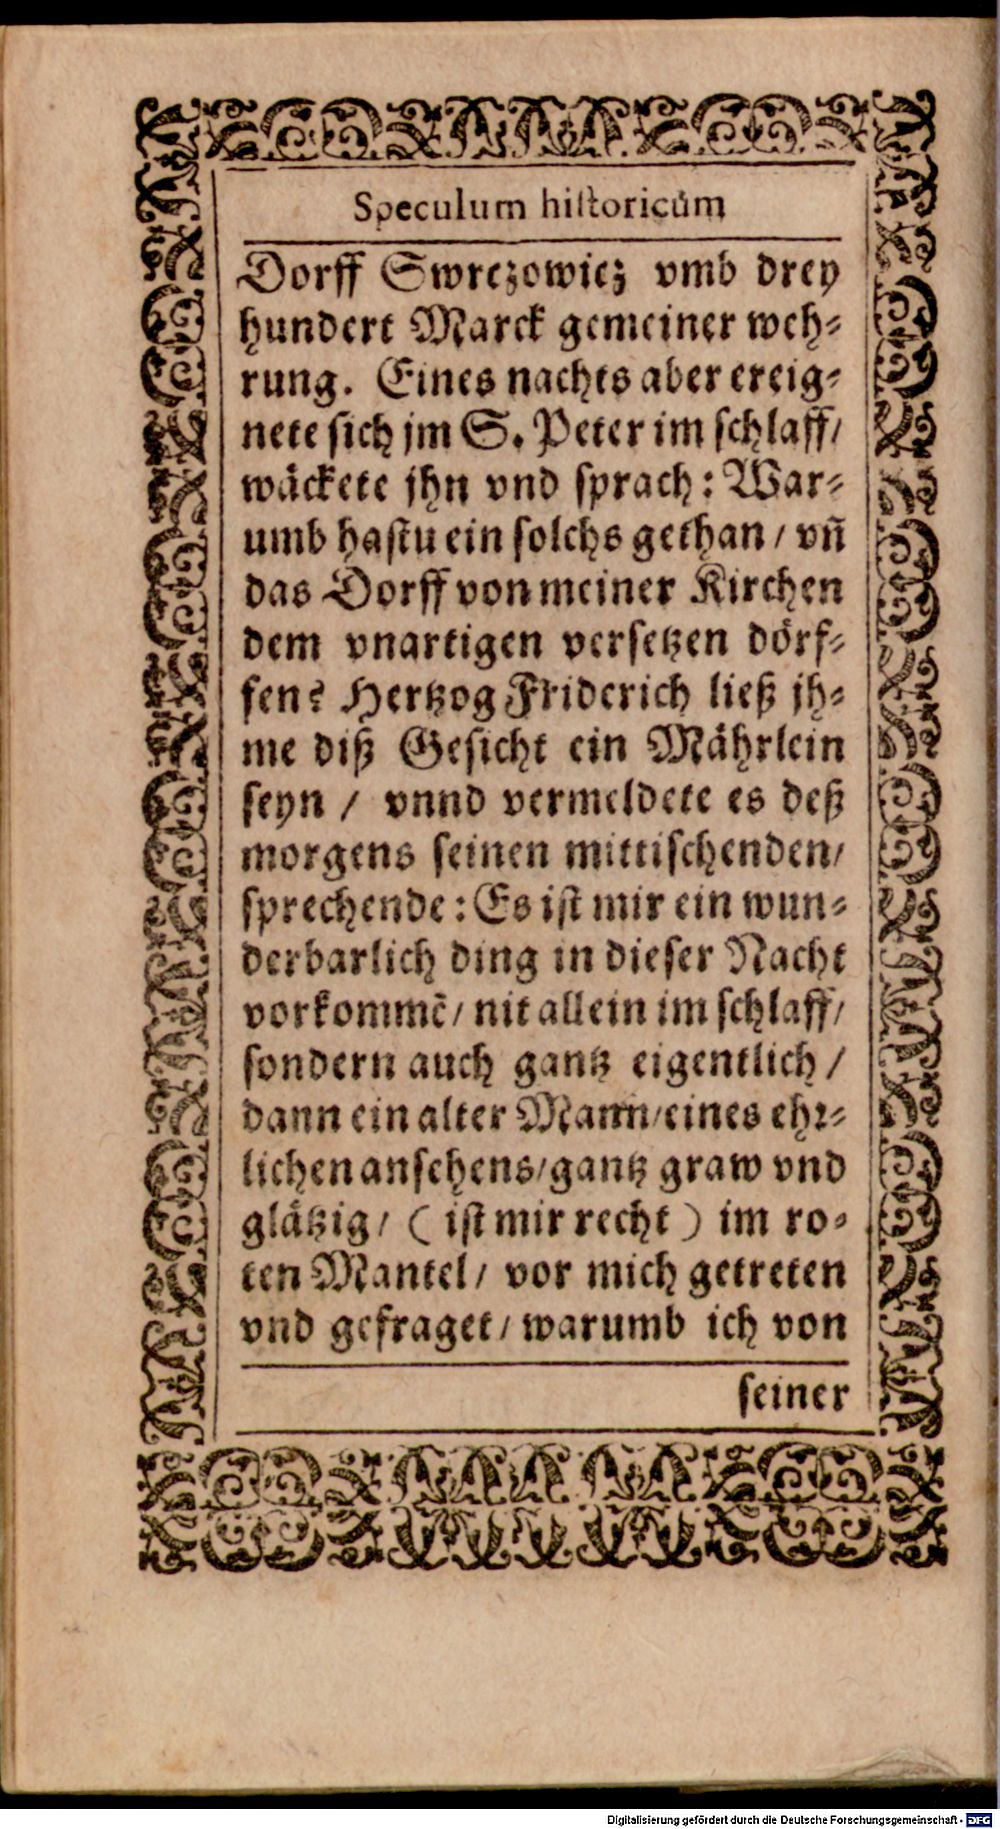 Speculum historicům
Dorff Swrczowicz vmb drey
hundert Marck gemeiner weh⸗
rung. Eines nachts aber ereig⸗
nete sich jm S. Peter im schlaff/
wäckete jhn vnd sprach: War⸗
umb hastu ein solchs gethan / vñ
das Dorff von meiner Kirchen
dem vnartigen versetzen dörf⸗
fen? Hertzog Friderich ließ jh⸗
me diß Gesicht ein Mährlein
seyn / vnnd vermeldete es deß
morgens seinen mittischenden/
sprechende: Es ist mir ein wun⸗
derbarlich ding in dieser Nacht
vorkommē/ nit allein im schlaff/
sondern auch gantz eigentlich /
dann ein alter Mann/eines ehr⸗
lichen ansehens/gantz graw vnd
glätzig/ ( ist mir recht ) im ro⸗
ten Mantel/ vor mich getreten
vnd gefraget/ warumb ich von
seiner
Digitalisierung gefördert durch die Deutsche Forschungsgemeinschaft - DFG